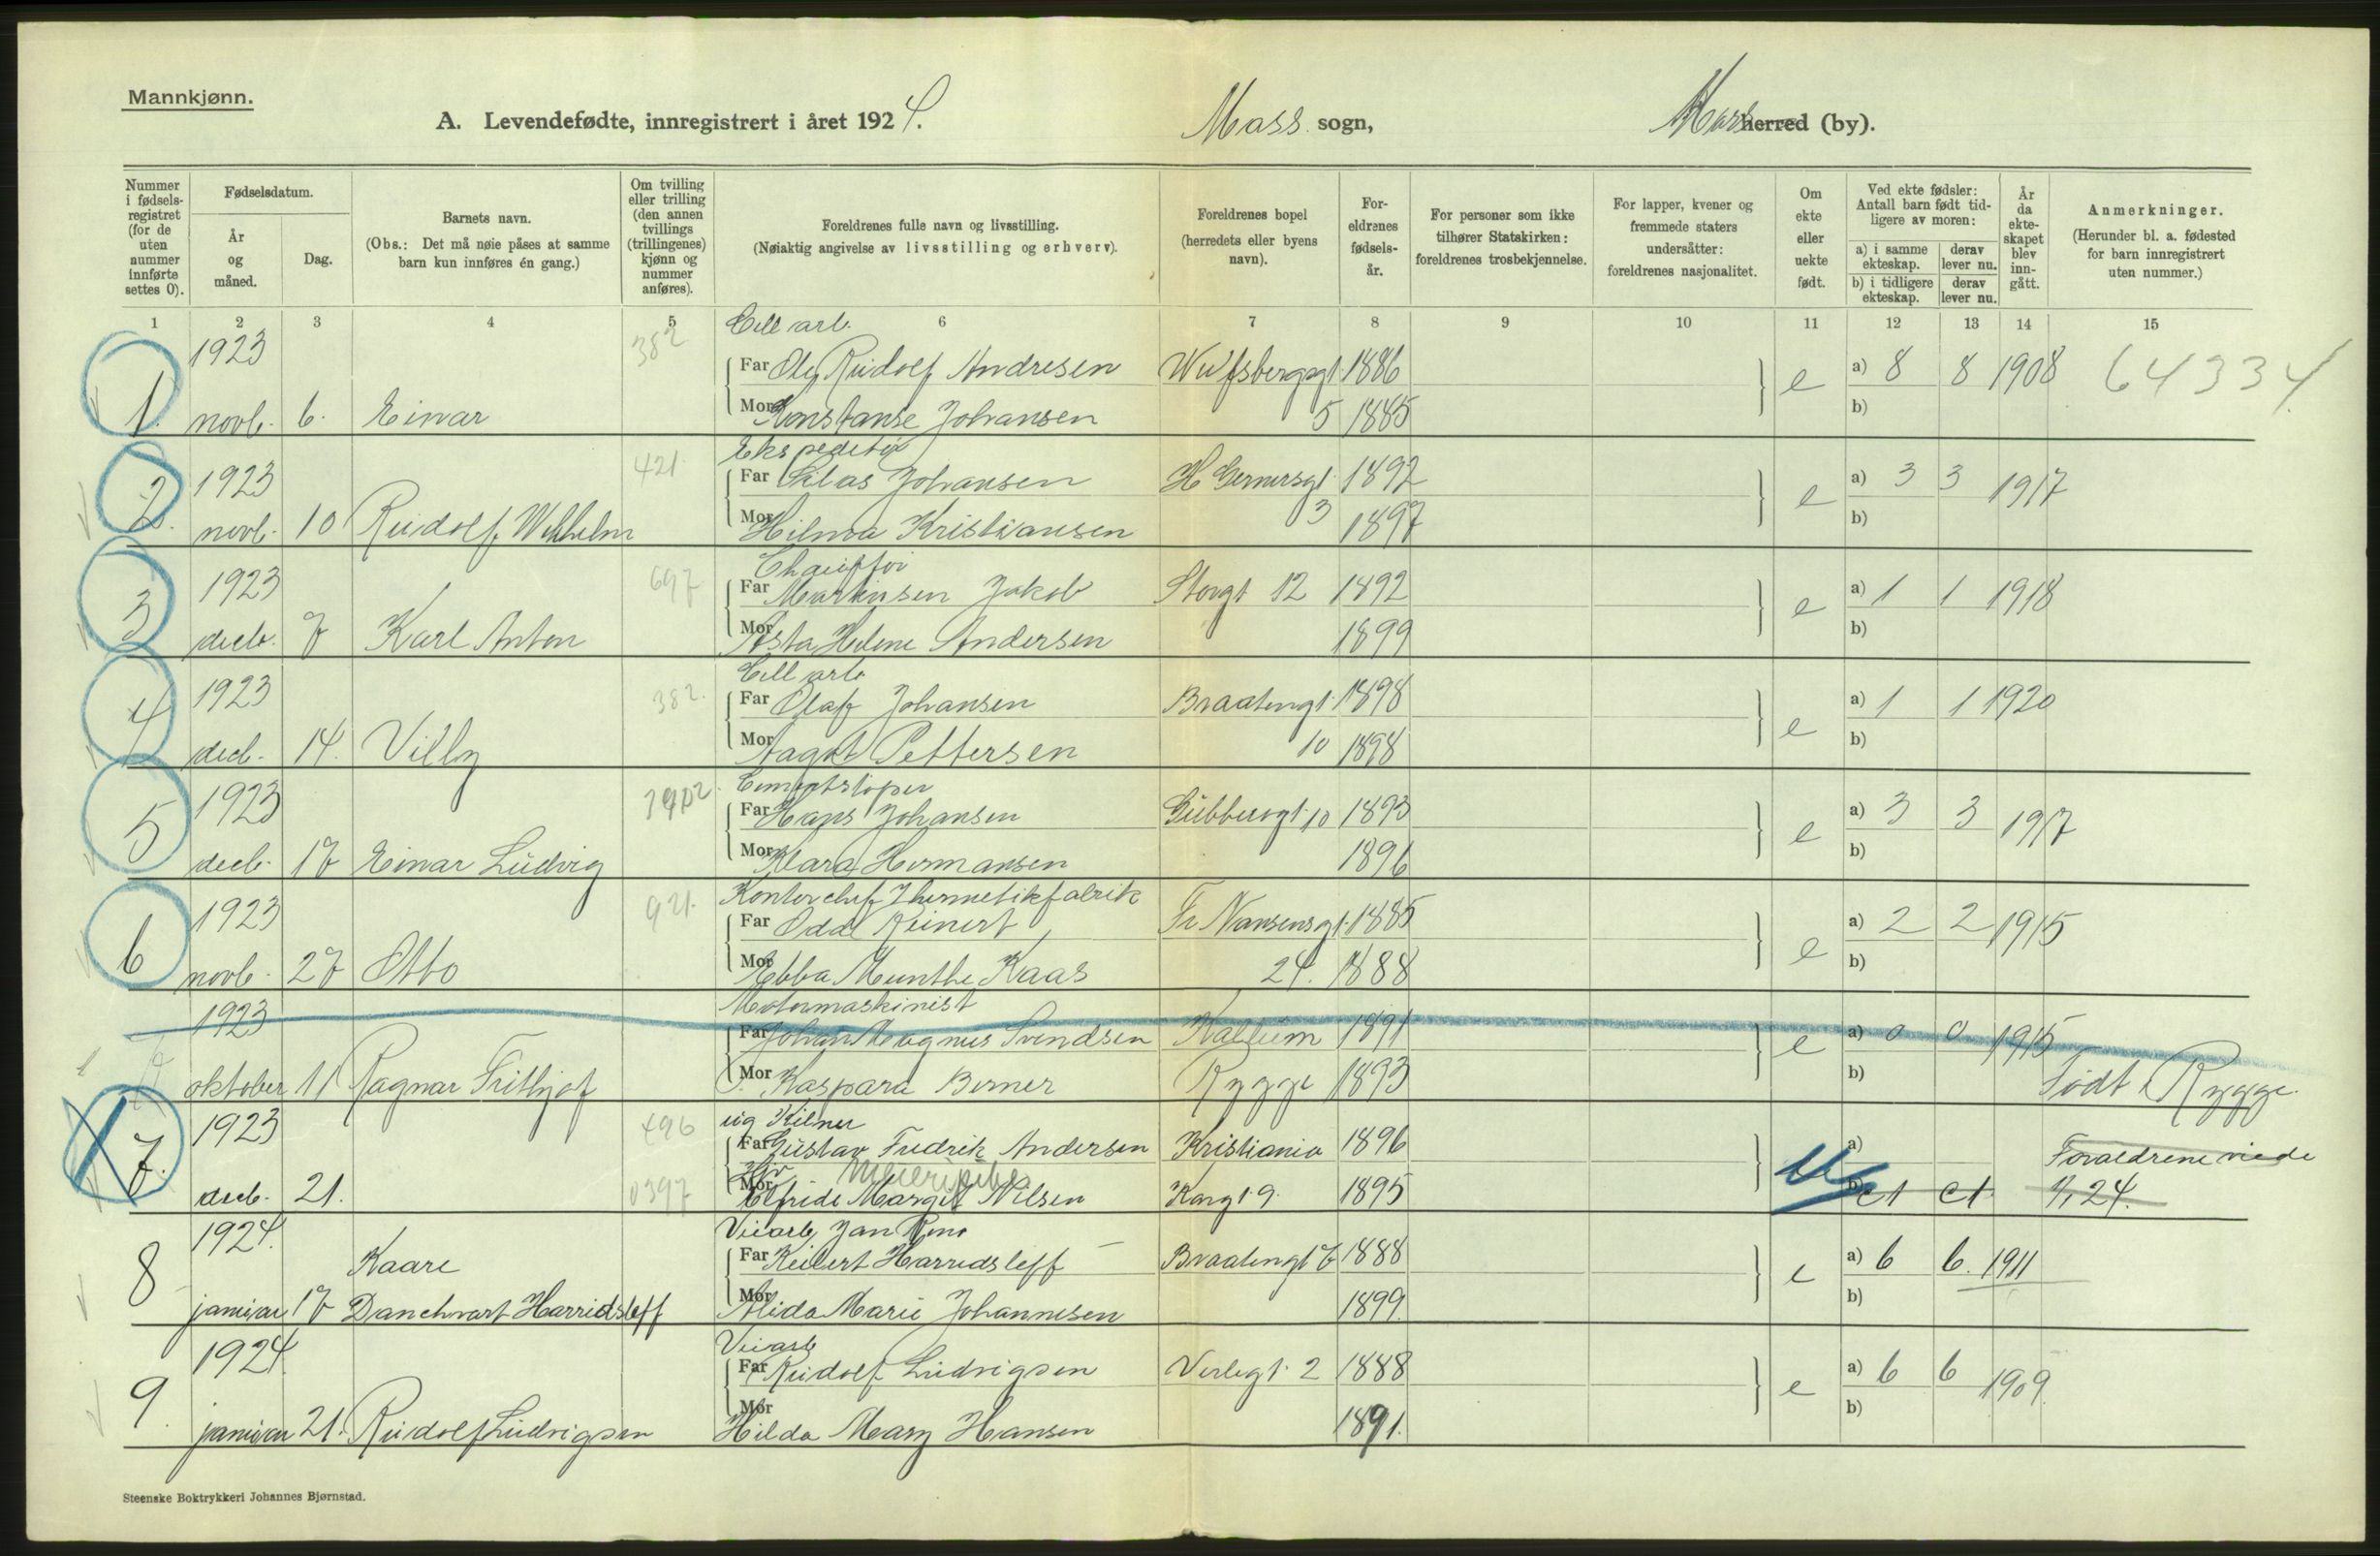 Mannkjønn.
A. Levendefødte, innregistrert i året 1924. Moss sogn, Moss herred (by).
Nummer i fødselsregistret (for de uten nummer innførte settes 0).
Fødselsdatum.
År og måned.
Dag.
Barnets navn.
(Obs.: Det må nøie påses at samme barn kun innføres én gang.)
Om tvilling eller trilling (den annen tvillings (trillingenes) kjønn og nummer anføres).
Foreldrenes fulle navn og livsstilling.
(Nøiaktig angivelse av livsstilling og erhverv).
Foreldrenes bopel (herredets eller byens navn).
Foreldrenes fødselsår.
For personer som ikke tilhører Statskirken: foreldrenes trosbekjennelse.
For lapper, kvener og fremmede staters undersåtter: foreldrenes nasjonalitet.
Om ekte eller uekte født.
Ved ekte fødsler: Antall barn født tidligere av moren:
a) i samme ekteskap. derav lever nu.
b) i tidligere ekteskap. derav lever nu.
År da ekteskapet blev inngått.
Anmerkninger.
(Herunder bl. a. fødested for barn innregistrert uten nummer.)
1 2 3 4 5 6 7 8 9 10 11 12 13 14 15
Cell arb.
1923 382 Far Ole Rudolf Andresen Wulfsbergsgt 1886 e a) 8 8 1908 64334
1. novb. 6. Einar Mor Konstanse Johansen 5 1885 b)
Ekspeditør
1923 421 Far Silas Johansen H Gernersgt. 1892 e a) 3 3 1917
2. novb. 10 Rudolf Wilhelm Mor Hilma Kristiansen 3 1897 b)
Chauffør
1923 697 Far Martinsen Jakob Storgt 12 1892 e a) 1 1 1918
3 decb. 7 Karl Anton Mor Asta Helene Andersen 1899 b)
Cell arb
1923 382. Far Olaf Johansen Braatengt. 1898 e a) 1 1 1920
4 decb. 14. Villy Mor Aagot Pettersen 10 1898 b)
Cementstøper
1923 Far Hans Johansen Gubberogt. 10 1893 e a) 3 3 1917
5 decb. 17 Einar Ludvig Mor Klara Hermansen 1896 b)
Kontorchef I hermetikfabrik
1923 921. Far Odd Reinert Fr Nansensgt. 1885 e a) 2 2 1915
6 novb. 27 Otto Mor Ebba Munthe Kaas 24. 1888 b)
Motormaskinist
1923 Far Johan Magnus Svendsen Kallum 1891 e a) 0 0 1915
7 oktober 11 Ragnar Frithjof Mor Kaspara Berner Rygge 1893 b) Født i Rygge.
ug Kelner
1923 496 Far Gustav Fredrik Andersen Kristiania 1896 a) Foraeldrene viede
Meieripike
7. decb. 21. 0397 Mor Elfride Margit Nilsen Kongt. 9. 1895 b) 1/1 24.
Veiarb Jan Remo
1924. Far Keilert Harridsleff Braatengt 7 1888 e a) 6 6. 1911
8 Kaare
januar 17 Danchvart Harridsleff Mor Alida Marie Johannesen 1899. b)
Veiarb
1924 Far Rudolf Ludvigsen Verlegt. 2 1888 e a) 6 6 1909.
9. januar 21. Rudolf Ludvigsen Mor Hilda Mary Hansen 1891. b)
Steenske Boktrykkeri Johannes Bjørnstad.